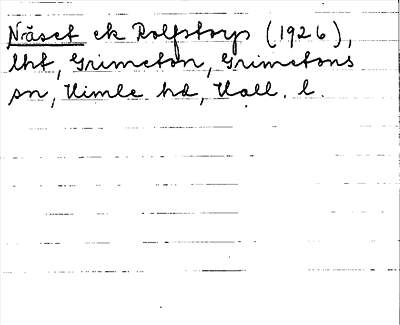 Näset ek Rolfstorp (1926),
lht, Grimeton, Grimetons
sn, Himle hd, Hall. l.